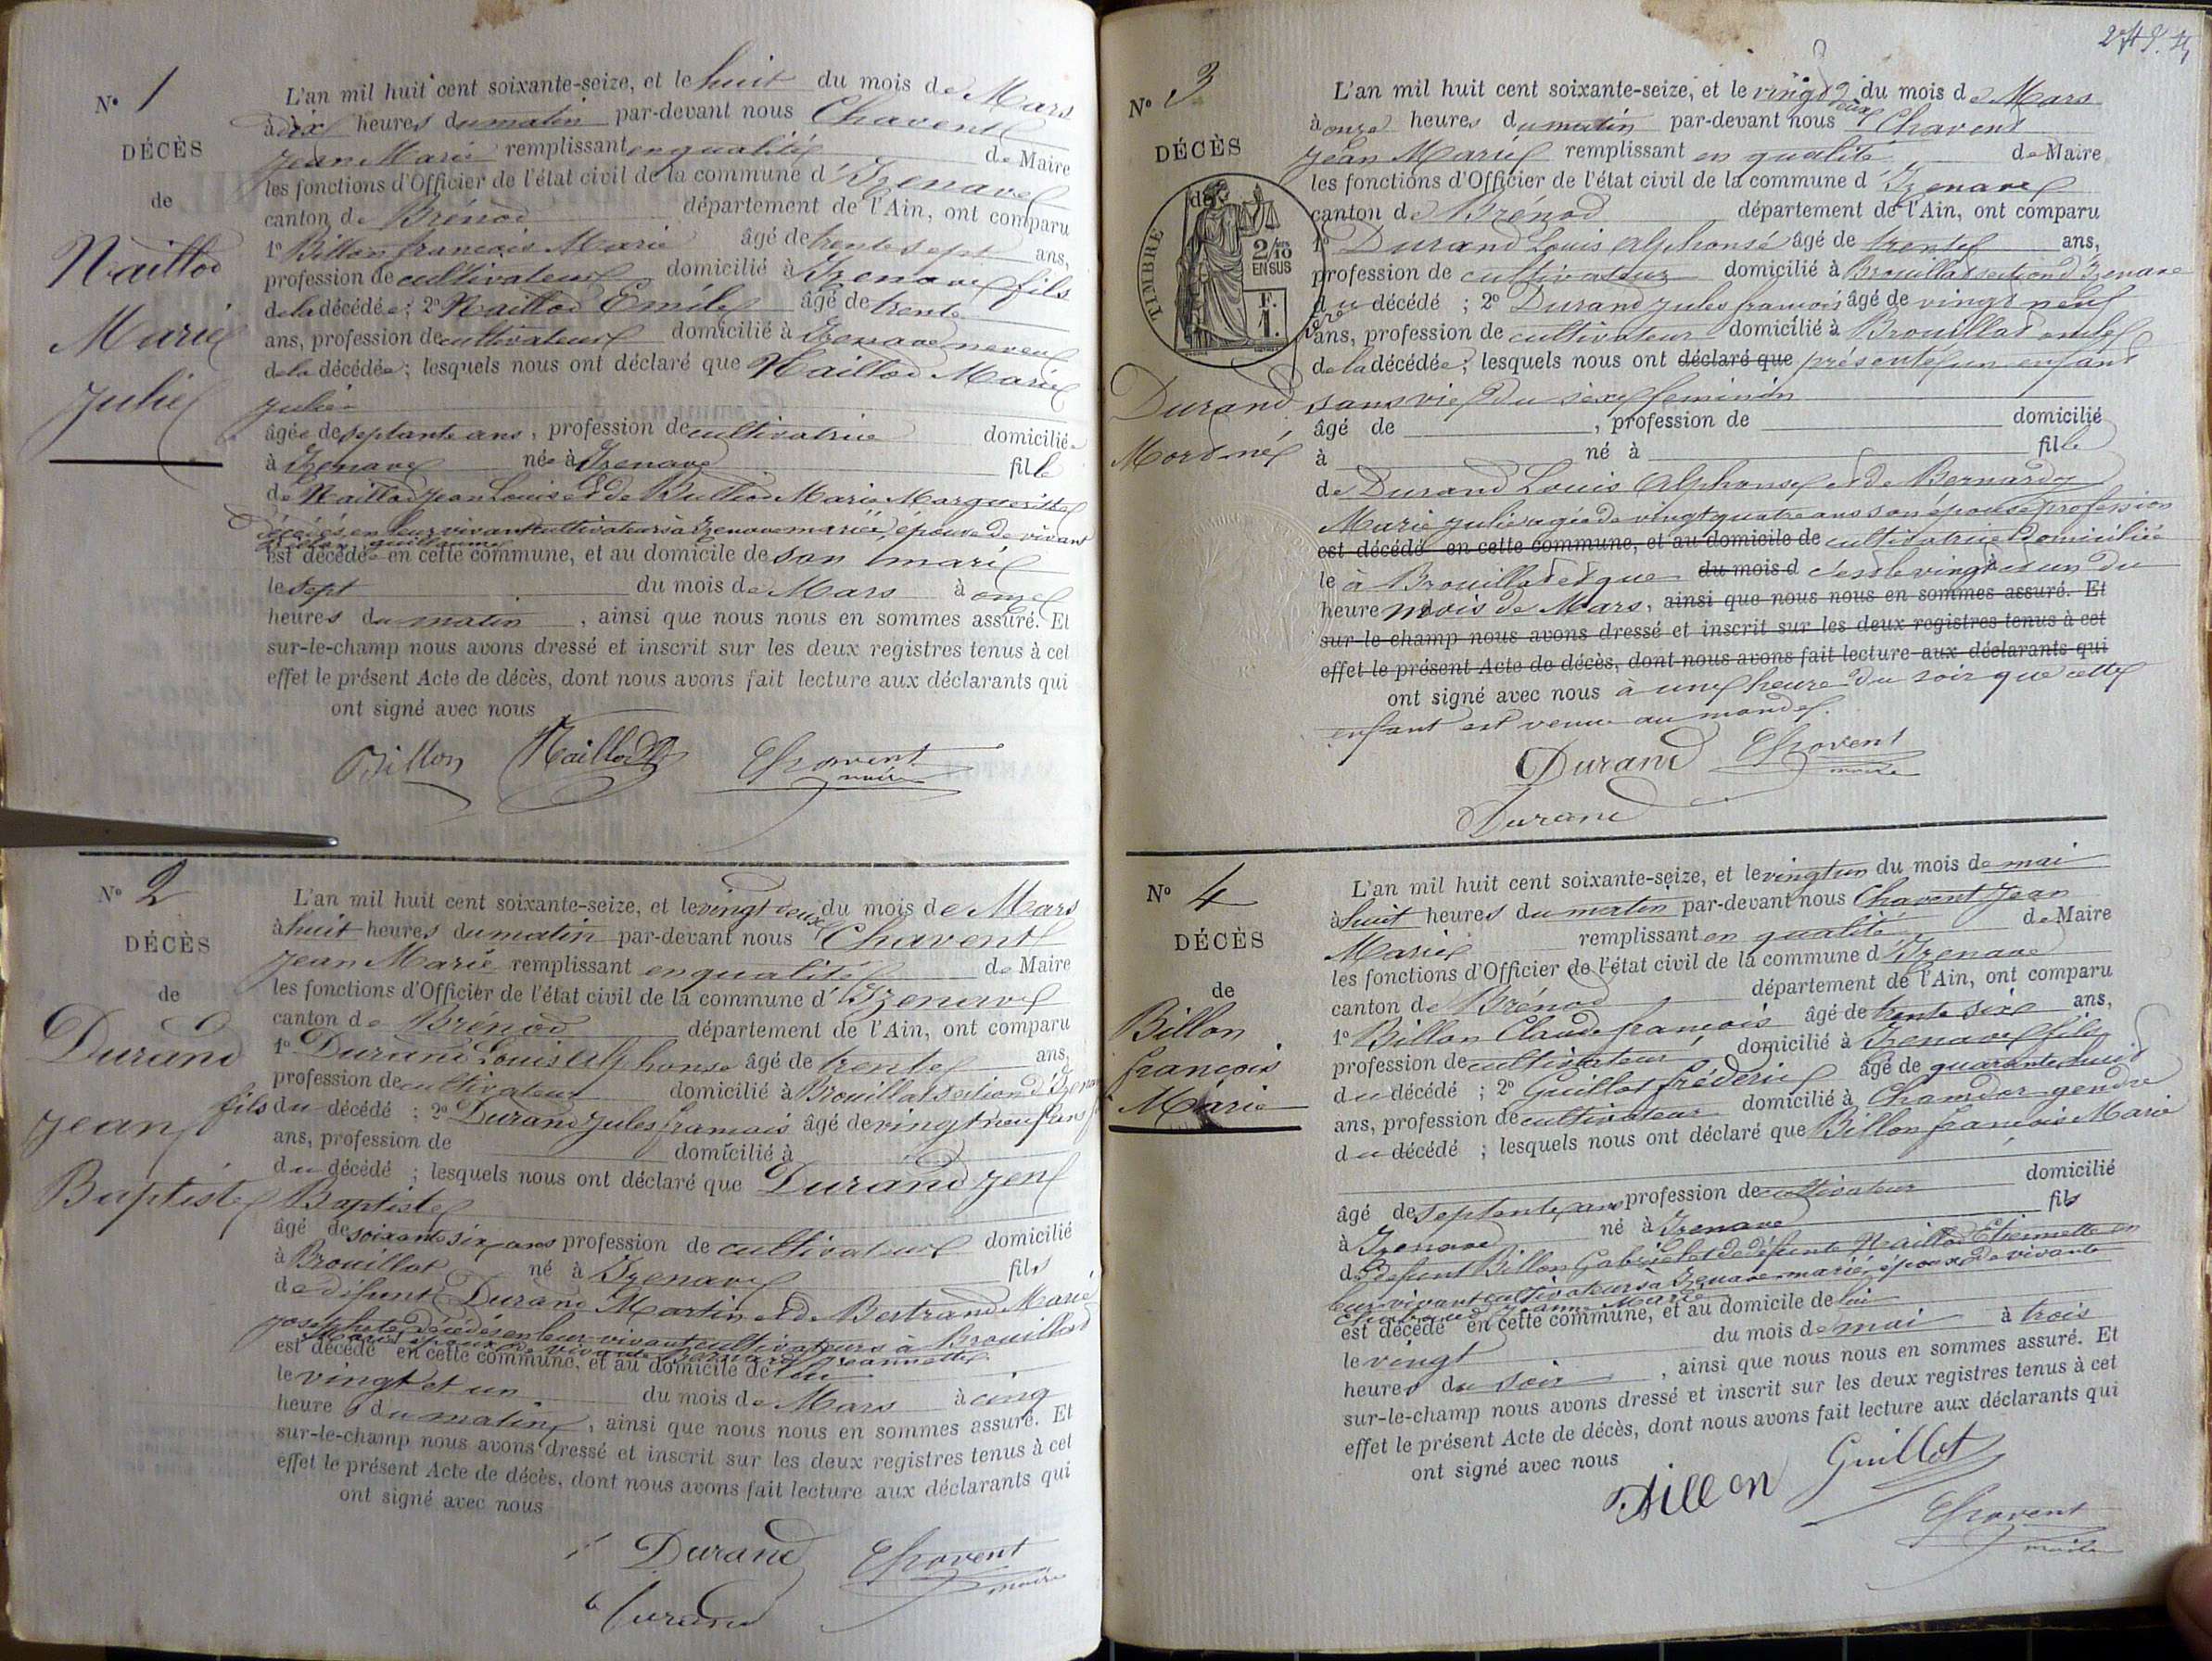 N° 1
DÉCÈS
de
Naillod
Marie
Julie
L'an mil huit cent soixante-seize, et le huit du mois de Mars
à dix heures du matin par-devant nous Chavent
Jean Marie remplissant en qualité de Maire
les fonctions d'Officier de l'état civil de la commune d'Izenave
canton de Brénod département de l'Ain, ont comparu
1° Billon francois Marie âgé de trente sept ans,
profession de cultivateur domicilié à Izenave fils
de la décédée; 2° Naillod Emile âgé de trente
ans, profession de cultivateur domicilié à Izenave neveu
de la décédée; lesquels nous ont déclaré que Naillod Marie
Julie
âgée de septante ans, profession de cultivatrice domiciliée
à Izenave née à Izenave fille
de Naillod Jean Louis et de Bullion Marie Marguerite
décédés en leur vivant cultivateurs à Izenave mariée, épouse de vivant
Billon guillaume
est décédée en cette commune, et au domicile de son mari
le sept du mois de Mars à onze
heures du matin, ainsi que nous nous en sommes assuré. Et
sur-le-champ nous avons dressé et inscrit sur les deux registres tenus à cet
effet le présent Acte de décès, dont nous avons fait lecture aux déclarants qui
ont signé avec nous
Billon Naillod Chavent
maire
N° 2
DÉCÈS
de
Durand
Jean
Baptiste
L'an mil huit cent soixante-seize, et le vingt deux du mois de Mars
à huit heures du matin par-devant nous Chavent
Jean Marie remplissant en qualité de Maire
les fonctions d'Officier de l'état civil de la commune d'Izenave
canton de Brénod département de l'Ain, ont comparu
1° Durand Louis alphonse âgé de trente ans,
profession de cultivateur domicilié à Brouillat section d'Izenave
fils du décédé; 2° Durand Jules francois âgé de vingt neuf ans
ans, profession de domicilié à
du décédé; lesquels nous ont déclaré que Durand Jen
Baptiste
âgé de soixante six ans profession de cultivateur domicilié
à Brouillat né à Izenave fils
de défunt Durand Martin et de Bertrand Marie
josephete décédés en leur vivant cultivateurs à Brouillat
Marié époux de vivante Bernard Jeannette
est décédé en cette commune, et au domicile de lui
le vingt et un du mois de Mars à cinq
heures du matin, ainsi que nous nous en sommes assuré. Et
sur-le-champ nous avons dressé et inscrit sur les deux registres tenus à cet
effet le présent Acte de décès, dont nous avons fait lecture aux déclarants qui
ont signé avec nous
Durand Chavent
maire
Durand
N° 3
DÉCÈS
de
TIMBRE
2/10
EN SUS
F.
1.
Durand
Mort né
L'an mil huit cent soixante-seize, et le vingt deux du mois de Mars
à onze heures du matin par-devant nous Chavent
Jean Marie remplissant en qualité de Maire
les fonctions d'Officier de l'état civil de la commune d'Izenave
canton de Brénod département de l'Ain, ont comparu
1° Durand Louis alphonse âgé de trente ans,
profession de cultivateur domicilié à Brouillat section d'Izenave
du décédé; 2° Durand Jules francois âgé de vingt neuf
ans, profession de cultivateur domicilié à Brouillat oncle
de la décédée; lesquels nous ont déclaré que présenté un enfant
sans vie du sexe feminin
âgé de , profession de domicilié
à né à fille
de Durand Louis Alphonse et de Bernardy
Marie Julie agée de vingt quatre ans son épouse profession
est décédé en cette commune, et au domicile de cultivatrice domiciliée
le à Brouillat et que du mois d c'est le vingt et un du
heure mois de Mars, ainsi que nous nous en sommes assuré. Et
sur-le-champ nous avons dressé et inscrit sur les deux registres tenus à cet
effet le présent Acte de décès, dont nous avons fait lecture aux déclarants qui
ont signé avec nous à une heure du soir que cette
enfant est venue au monde.
Durand Chavent
maire
Durand
N° 4
DÉCÈS
de
Billon
francois
Marie
L'an mil huit cent soixante-seize, et le vingt un du mois de mai
à huit heures du matin par-devant nous Chavent Jean
Marie remplissant en qualité de Maire
les fonctions d'Officier de l'état civil de la commune d'Izenave
canton de Brénod département de l'Ain, ont comparu
1° Billon Claude francois âgé de trente six ans,
profession de cultivateur domicilié à Izenave fils
du décédé; 2° Guillot fréderic âgé de quarante huit
ans, profession de cultivateur domicilié à Chamdor gendre
du décédé; lesquels nous ont déclaré que Billon francois Marie
âgé de septente ans profession de cultivateur domicilié
à Izenave né à Izenave fils
de défunt Billon Gabriel et de défunte Naillod Etiennette en
leur vivant cultivateurs à Izenave marié, époux de vivante
Jeanne Marie
est décédé en cette commune, et au domicile de lui
le vingt du mois de mai à trois
heures du soir, ainsi que nous nous en sommes assuré. Et
sur-le-champ nous avons dressé et inscrit sur les deux registres tenus à cet
effet le présent Acte de décès, dont nous avons fait lecture aux déclarants qui
ont signé avec nous
Billon Guillot
Chavent
maire